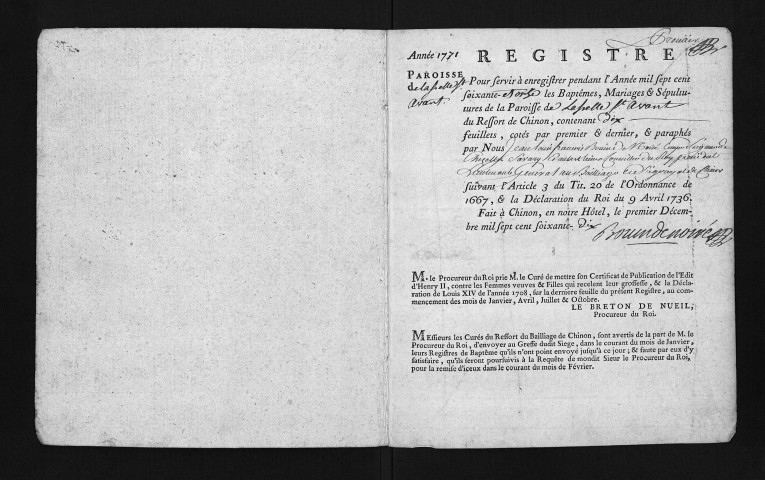 Premier
Année 1771 REGISTRE
PAROISSE
de lachelle St
avant.
Pour servir à enregistrer pendant l'Année mil sept cent
soixante et onze les Baptêmes, Mariages & Sépultu-
tures de la Paroisse de Lachelle St avant
du Ressort de Chinon, contenant dix
feuillets, cotés par premier & dernier, & paraphés
par Nous Jean Louis francois
Conseiller du Roy
Lieutenant General au Bailliage
suivant l'Article 3 du Tit. 20 de l'Ordonnance de
1667, & la Déclaration du Roi du 9 Avril 1736.
Fait à Chinon, en notre Hôtel, le premier Décem-
bre mil sept cent soixante dix
M. le Procureur du Roi prie M. le Curé de mettre son Certificat de Publication de l'Edit
d'Henry II, contre les Femmes veuves & Filles qui recelent leur grossesse, & la Décla-
ration de Louis XIV de l'année 1708, sur la derniere feuille du présent Registre, au com-
mencement des mois de Janvier, Avril, Juillet & Octobre.
LE BRETON DE NUEIL,
Procureur du Roi.
MEssieurs les Curés du Ressort du Bailliage de Chinon, sont avertis de la part de M. le
Procureur du Roi, d'envoyer au Greffe dudit Siege, dans le courant du mois de Janvier,
leurs Registres de Baptême qu'ils n'ont point envoyé jusqu'à ce jour; & faute par eux d'y
satisfaire, qu'ils seront poursuivis à la Requête de mondit Sieur le Procureur du Roi,
pour la remise d'iceux dans le courant du mois de Février.